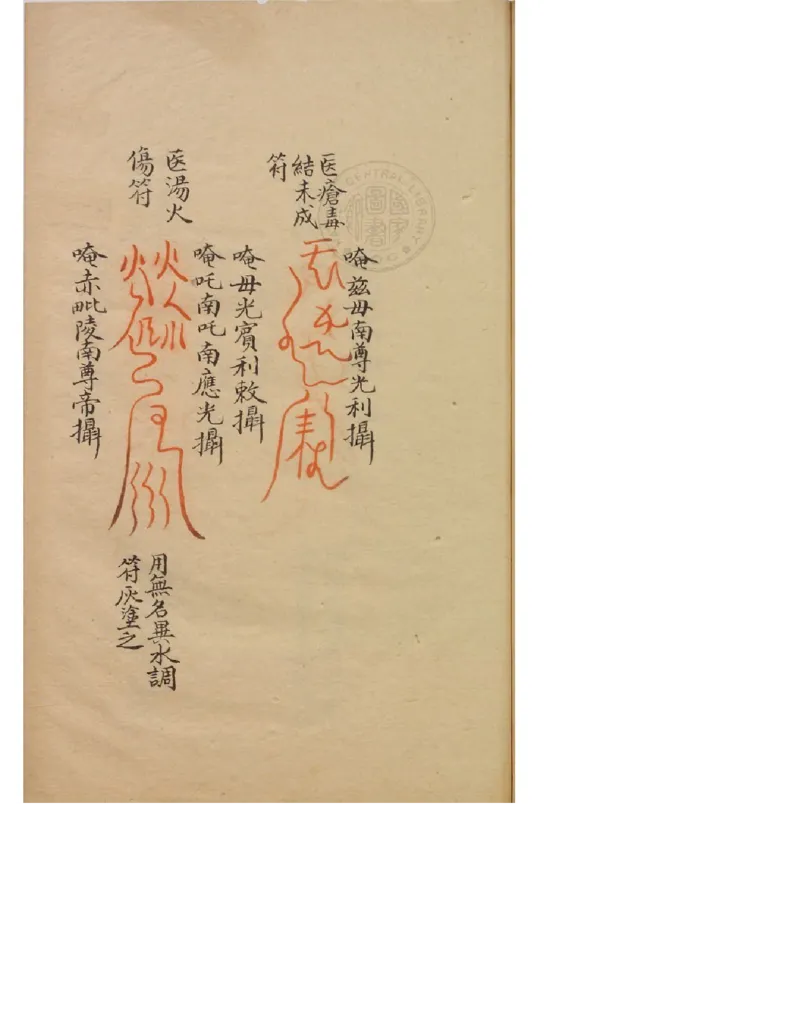 医瘡毒
結未成
符
唵茲毋南尊光利攝
唵毋光賓利敕攝
医湯火
傷符
唵吒南吒南應光攝
唵赤毗陵南尊帝攝
用無名異水調
符灰塗之
CENTRAL LIBRARY
國家
圖書